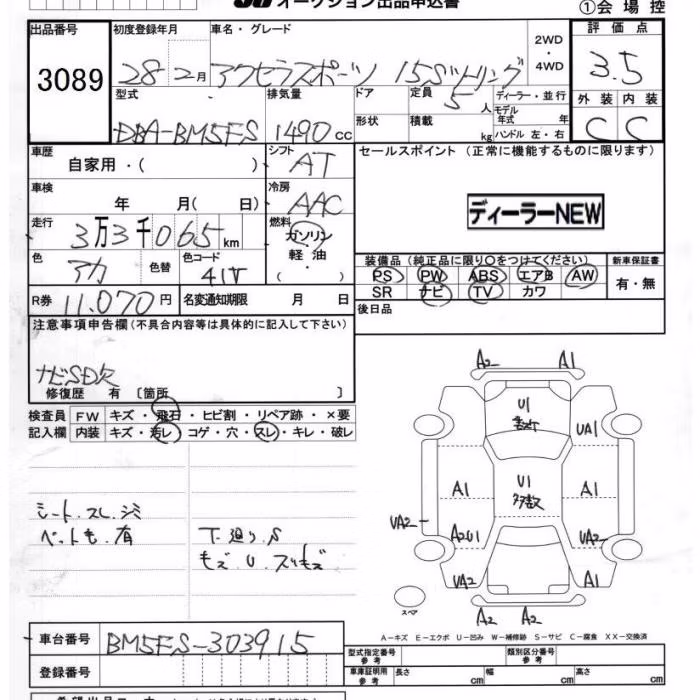 オークション出品申込書
①会場控
出品番号
3089
初度登録年月
28 2月
車名・グレード
アクセラスポーツ 15Sツーリング
2WD
・
4WD
評価点
3.5
外装 内装
C C
型式
DBA-BM5FS
排気量
1490cc
ドア
形状
定員 5人
積載 kg
ディーラー・並行
モデル年式 年
ハンドル 左・右
車歴
自家用・( )
シフト
AT
セールスポイント (正常に機能するものに限ります)
ディーラーNEW
車検
年 月( 日)
冷房
AAC
走行
3万3千065km
燃料
ガソリン
軽油
( ・ )
色
アカ
色替
色コード
41V
装備品 (純正品に限り○をつけてください)
PS PW ABS エアB AW
SR ナビ TV カワ
新車保証書
有・無
R券 11,070円
名変通知期限 月 日
後日品
注意事項申告欄(不具合内容等は具体的に記入して下さい)
ナビSD欠
修復歴 有〔箇所 〕
検査員記入欄
FW キズ・飛石・ヒビ割・リペア跡・×要
内装 キズ・汚レ・コゲ・穴・スレ・キレ・破レ
シート.スレ.シミ
ペット毛.有
下廻り.S
モズ U スリキズ
A2 A1
U1
U1
多数
UA1
A1
A1
UA2
A2U1
UA2
UA2
A1
スペア
A2 A2
A-キズ E-エクボ U-凹み W-補修跡 S-サビ C-腐食 XX-交換済
車台番号
BM5FS-303915
登録番号
型式指定番号
参考
類別区分番号
参考
車庫証明用
参考
長さ cm
幅 cm
高さ cm